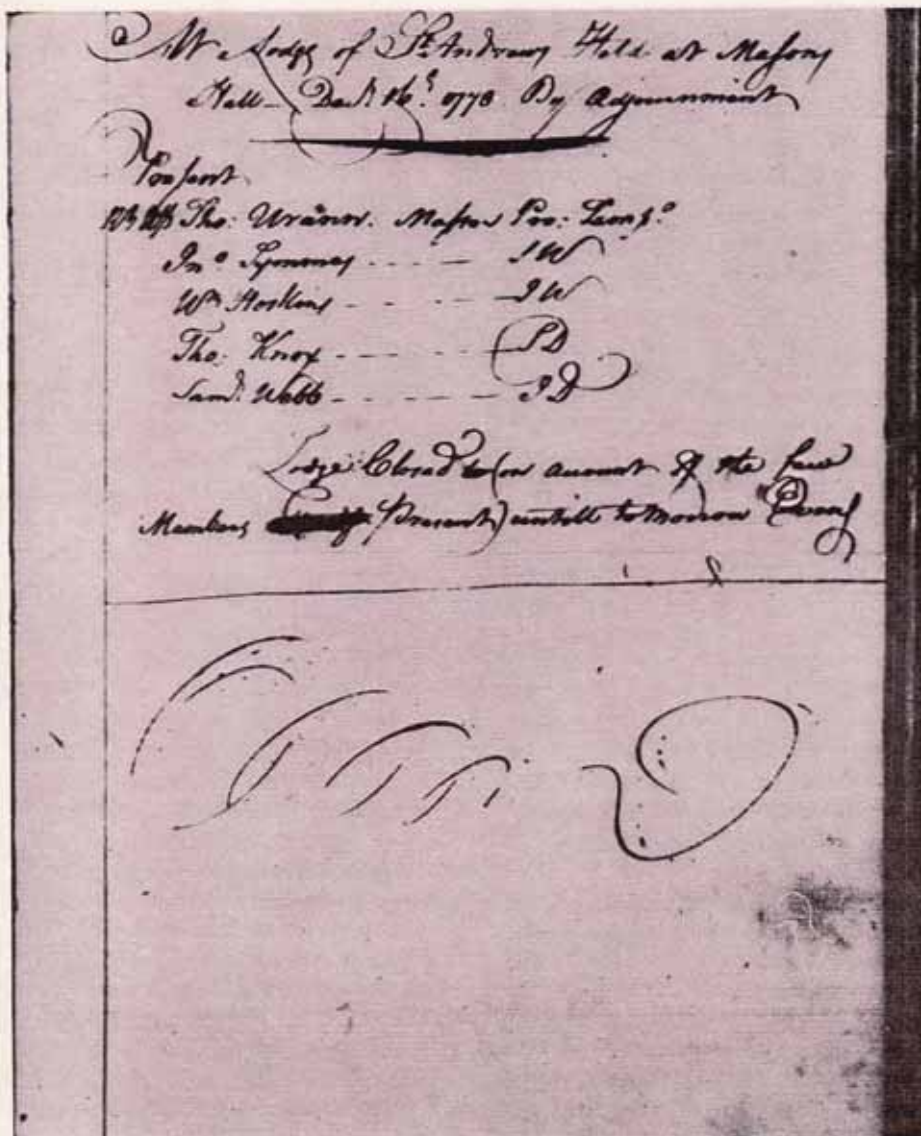 a Lodge of St. Andrews Held at Masons
Hall Decr. 16th. 1773 By Adjournment
Present
Tho: Urann. Master Pro: Temp.
Jno Symmes - - - - - SW
Wm Hoskins - - - - - JW
Tho: Knox - - - - - SD
Saml. Webb - - - - - JD
Lodge Closed (on account of the few
Members Present) untill to Morrow Eveng